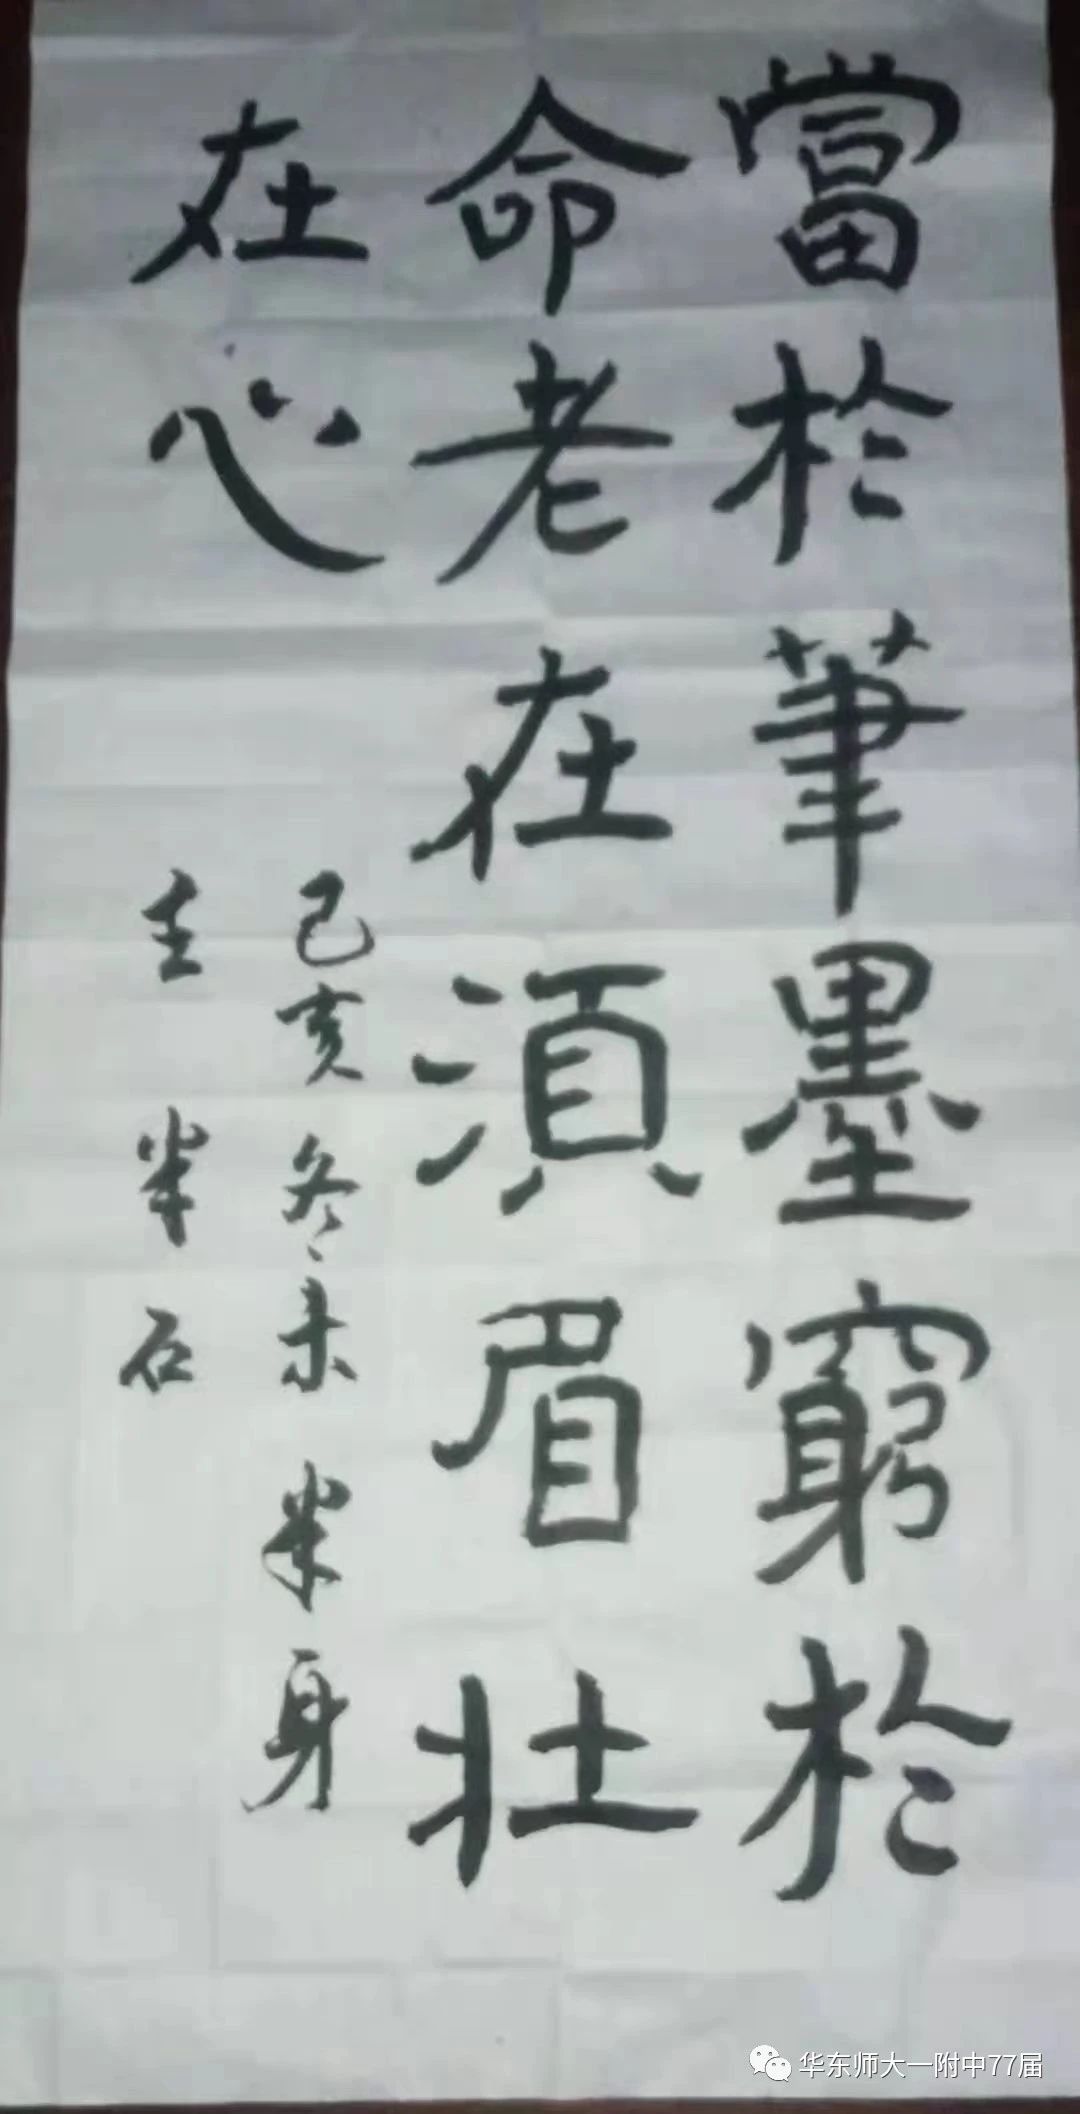 當於筆墨窮於
命老在湏眉壯
在心
己亥冬末身
主半石
华东师大一附中77届